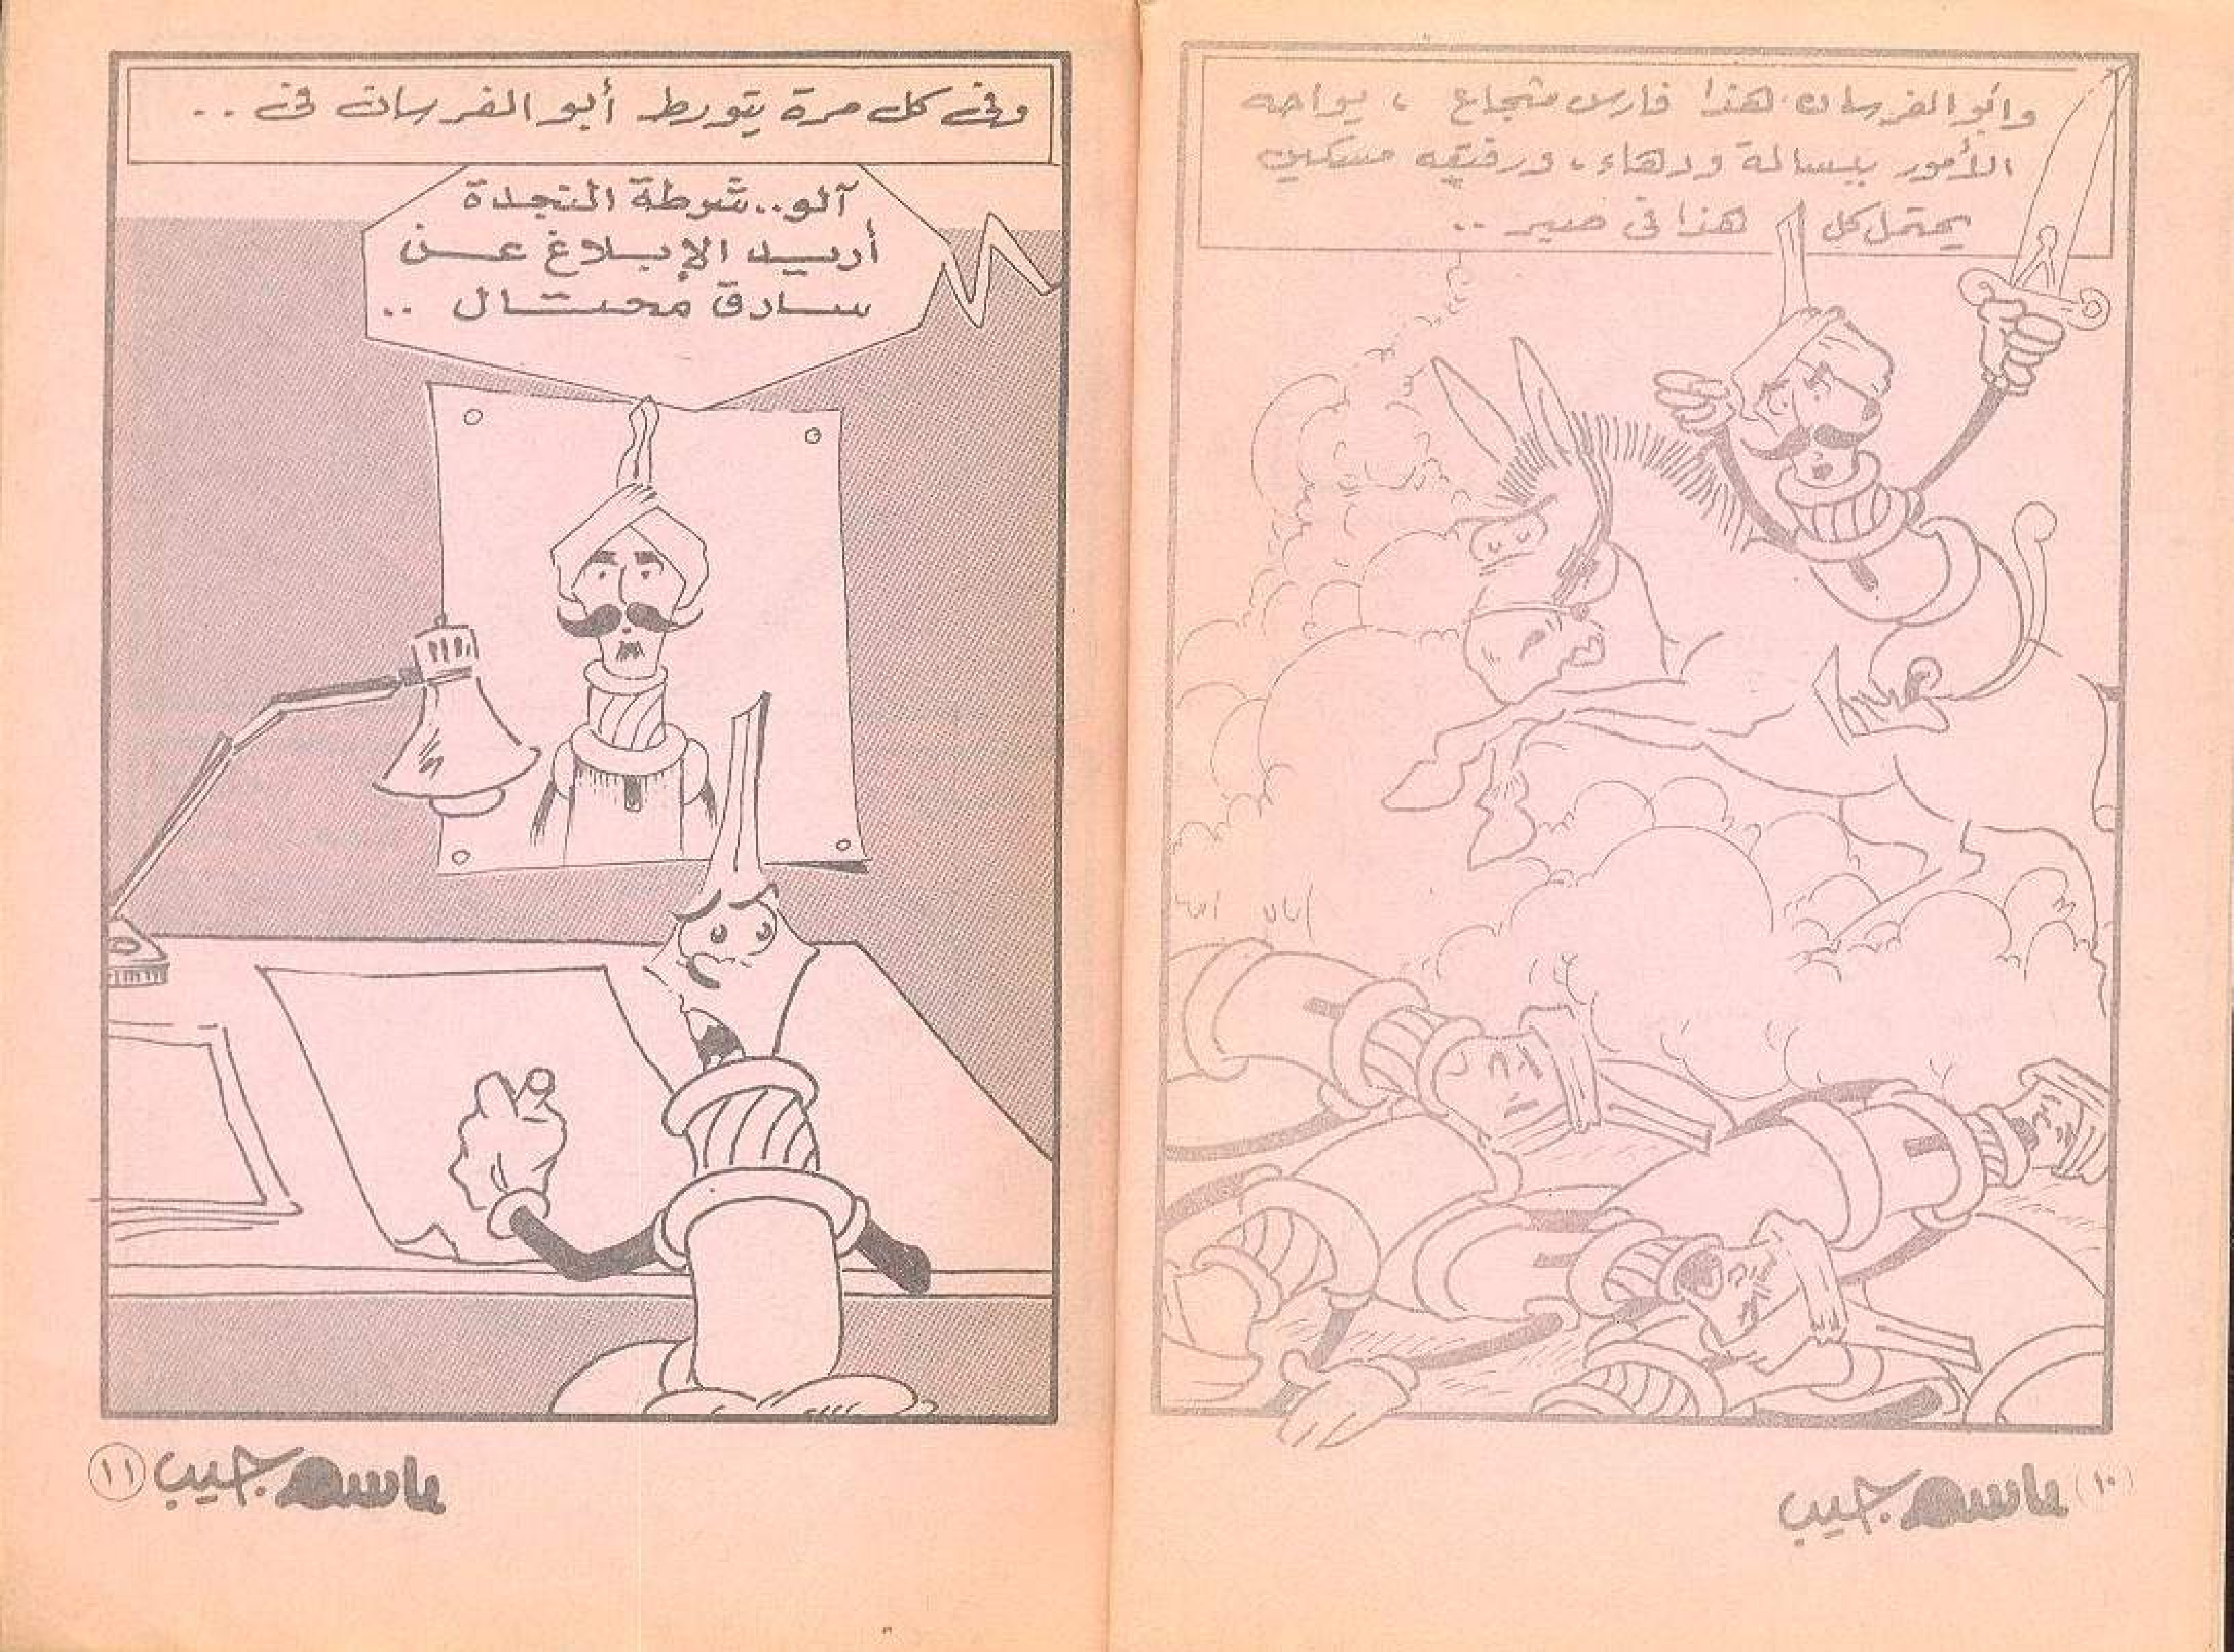 وأبو الفرسان هذا فارس شجاع ، يواجه
الأمور ببسالة ودهاء ، ورفيقه مسكين
يحتمل كل هذا فى صبر ..
باسم جيب
(١٠)
وفى كل مرة يتورط أبو الفرسان فى ..
آلو.. شرطة النجدة
أريد الإبلاغ عن
سارق محتال ..
باسم جيب
١١